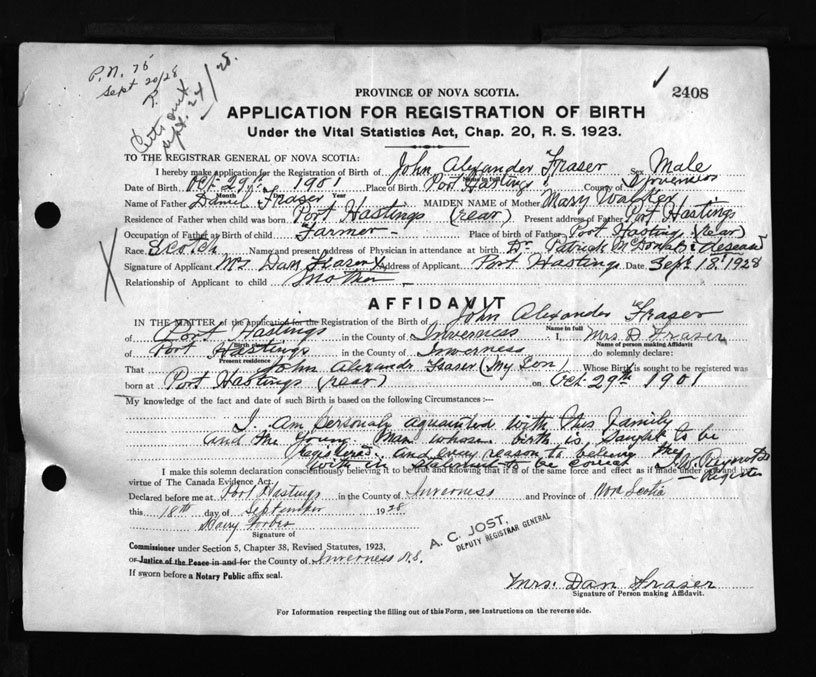 P.N. 75
Sept 20/28
2408
PROVINCE OF NOVA SCOTIA.
APPLICATION FOR REGISTRATION OF BIRTH
Under the Vital Statistics Act, Chap. 20, R. S. 1923.
TO THE REGISTRAR GENERAL OF NOVA SCOTIA:
I hereby make application for the Registration of Birth of John Alexander Fraser Sex Male
Name in full
Date of Birth Oct. 29th 1901 Place of Birth Port Hastings County of Inverness
Month Day Year
Name of Father Daniel Fraser MAIDEN NAME of Mother Mary Walker
Residence of Father when child was born Port Hastings (rear) Present address of Father Port Hastings
Occupation of Father at Birth of child Farmer Place of birth of Father Port Hastings (rear)
Race Scotch Name and present address of Physician in attendance at birth Dr. Patrick
Signature of Applicant Mrs Dan Fraser X Address of Applicant Port Hastings Date Sept 18, 1928
Relationship of Applicant to child Mother
AFFIDAVIT
IN THE MATTER of the Application for the Registration of the Birth of John Alexander Fraser
Name in full
of Port Hastings in the County of Inverness I, Mrs. D. Fraser
Birth place
Name of person making Affidavit
of Port Hastings in the County of Inverness do solemnly declare:
Present residence
That John Alexander Fraser (My Son) Whose Birth is sought to be registered was
born at Port Hastings (rear) on Oct. 29th 1901
My knowledge of the fact and date of such Birth is based on the following Circumstances :—
I am personaly aquainted with this Family
and the Young Man whose birth is Saught to be
Registered. and every reason to believe the
with in statement to be correct
Register
I make this solemn declaration conscientiously believing it to be true and knowing that it is of the same force and effect as if made under oath and by
virtue of The Canada Evidence Act.
Declared before me at Port Hastings in the County of Inverness and Province of Nova Scotia
this 18th day of September 1928
Mary Forbes
Signature of
Commissioner under Section 5, Chapter 38, Revised Statutes, 1923,
or Justice of the Peace in and for the County of Inverness N.S.
If sworn before a Notary Public affix seal.
A. C. JOST,
DEPUTY REGISTRAR GENERAL
Mrs. Dan Fraser
Signature of Person making Affidavit.
For Information respecting the filling out of this Form, see Instructions on the reverse side.